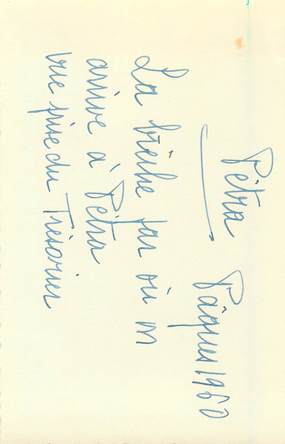 Pétra Pâques 1960
La brèche par où on
arrive à Pétra
vue prise du Trésorier